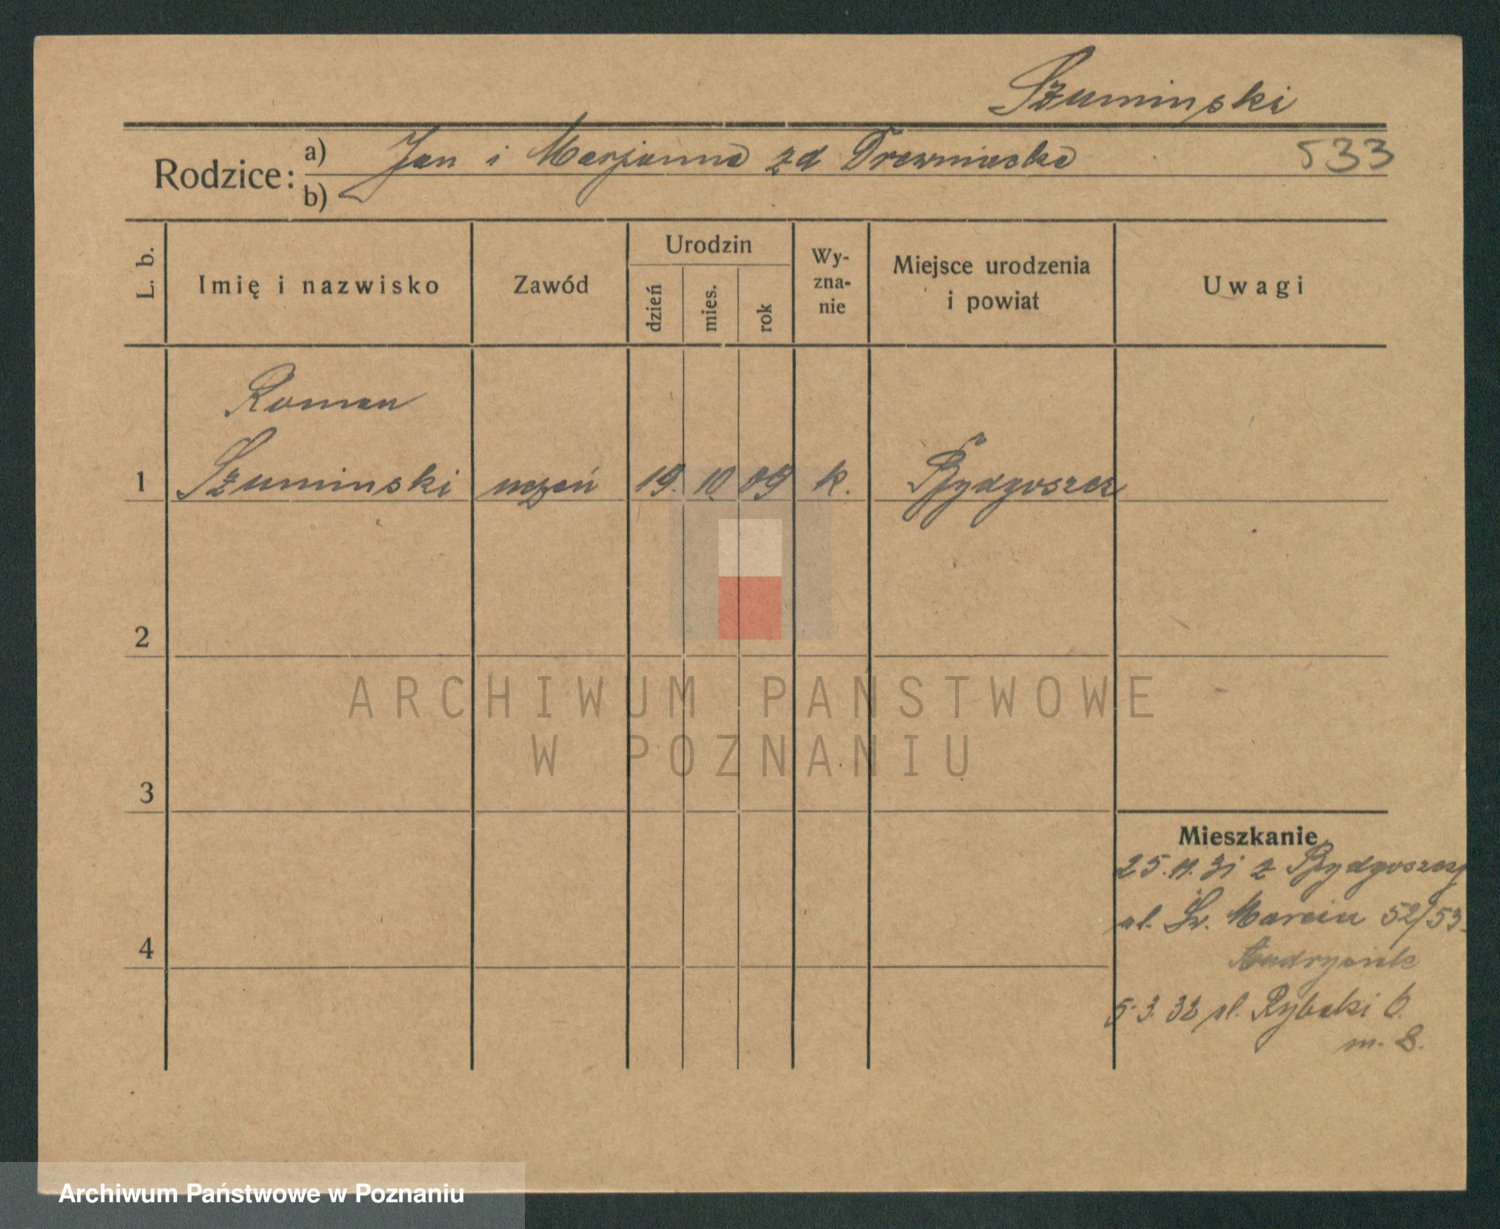 Szuminski
Rodzice: a) Jan i Marjanna zd Drewniacka 533
b)
L. b.
Imię i nazwisko
Zawód
Urodzin
dzień
mies.
rok
Wy-
zna-
nie
Miejsce urodzenia
i powiat
Uwagi
Roman
1 Szuminski uczeń 19. 10. 09 k. Bydgoszcz
2
ARCHIWUM PAŃSTWOWE
W POZNANIU
3
Mieszkanie
25.11.31 z Bydgoszczy
ul. Św. Marcin 52/53
4
5.3.32 ul. Rybaki 6
m. 8.
Archiwum Państwowe w Poznaniu